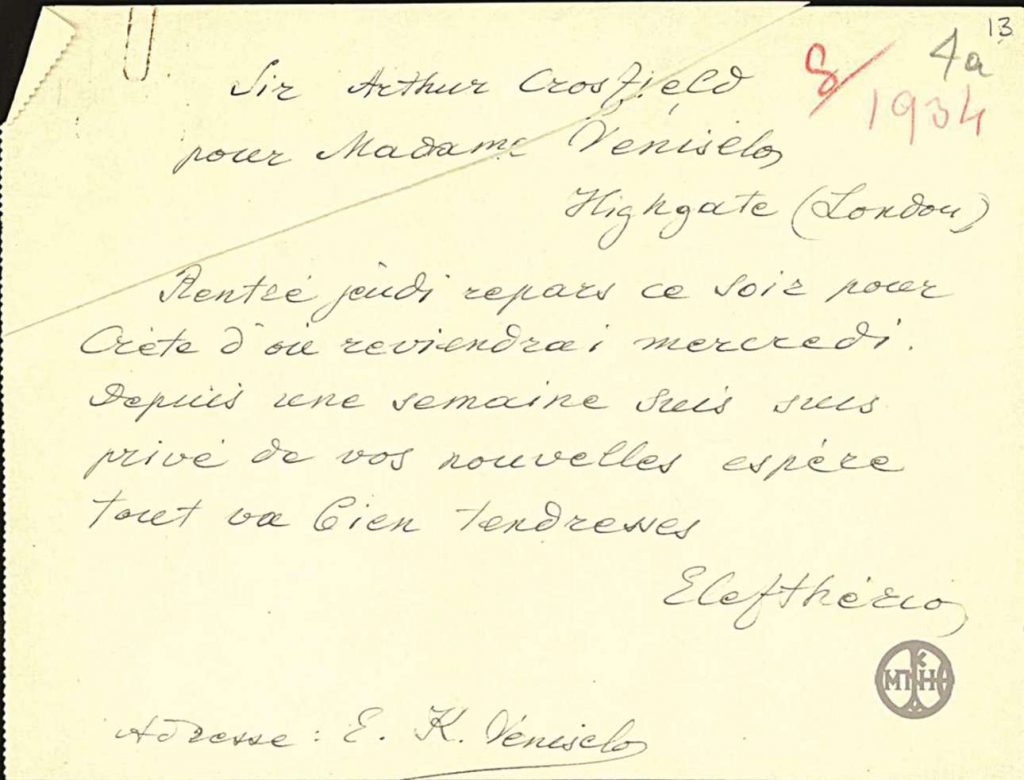 13
4a
8/
1934
Sir Arthur Crosfield
pour Madame Vénisélos
Highgate (London)
Rentré jeudi repars ce soir pour
Crète d'où reviendrai mercredi.
Depuis une semaine suis suis
privé de vos nouvelles espère
tout va bien tendresses
Elefthérios
ΜΠΚΗΑ
Adresse: E. K. Vénisélos